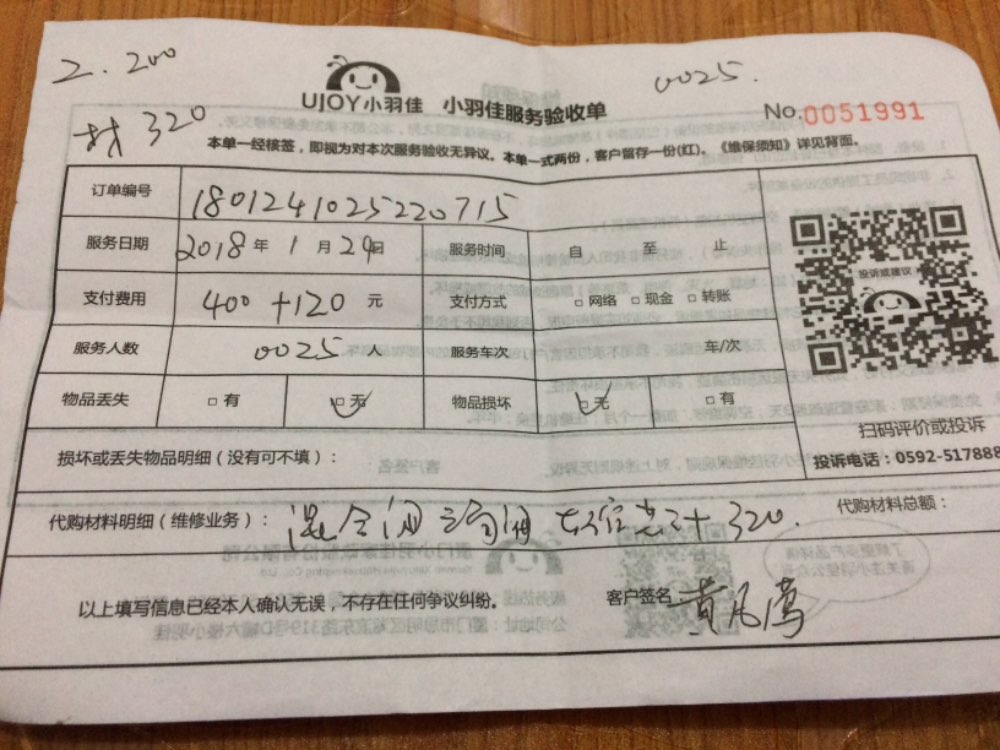 2.200
0025.
UJOY小羽佳 小羽佳服务验收单
No.0051991
320
本单一经核签，即视为对本次服务验收无异议。本单一式两份，客户留存一份(红)。《维保须知》详见背面。
订单编号 1801241025220715
服务日期 2018年1月29日 服务时间 自 至 止
支付费用 400+120 元 支付方式 □网络 □现金 □转账
服务人数 0025 人 服务车次 车/次
物品丢失 □有 □无 物品损坏 □无 □有
投诉或建议
扫码评价或投诉
损坏或丢失物品明细(没有可不填)：
投诉电话：0592-517888
代购材料明细(维修业务)：混合阀 320. 代购材料总额：
以上填写信息已经本人确认无误，不存在任何争议纠纷。 客户签名 黄凤莺